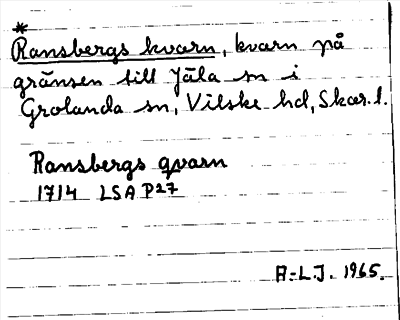 *
Ransbergs kvarn, kvarn på
gränsen till Jäla sn i
Grolanda sn, Vilske hd, Skar. l.
Ransbergs qvarn
1714 LSA P27
A-LJ. 1965.